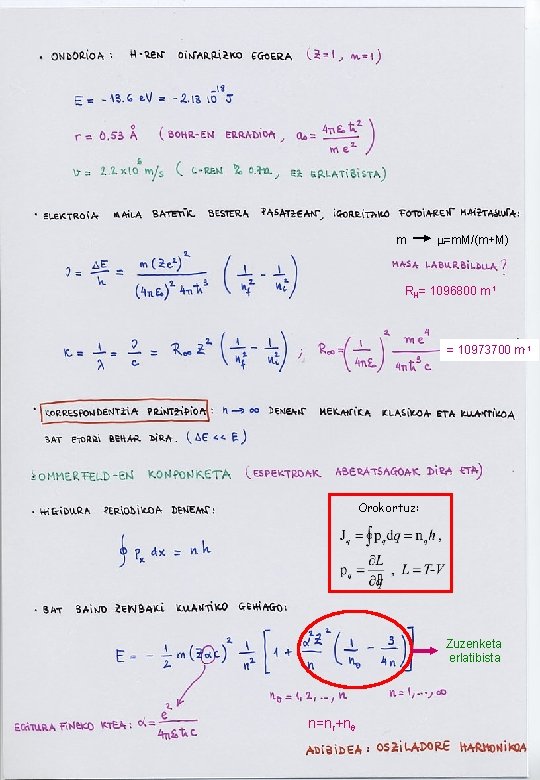 · ONDORIOA: H-REN OINARRIZKO EGOERA (Z=1, n=1)
E = -13.6 eV = -2.13 10⁻¹⁸ J
r = 0.53 Å (BOHR-EN ERRADIOA, a₀ = 4πε₀ħ²/me²)
v = 2.2×10⁶ m/s (C-REN % 0.7a, EZ ERLATIBISTA)
· ELEKTROIA MAILA BATETIK BESTERA PASATZEAN, IGORRITAKO FOTOIAREN MAIZTASUNA:
m → μ=mM/(m+M)
ν = ΔE/h = m(Ze²)²/(4πε₀)²4πħ³ (1/n_f² - 1/n_i²)
MASA LABURBILDUA?
R_H= 1096800 m⁻¹
κ = 1/λ = ν/c = R∞ Z² (1/n_f² - 1/n_i²) ; R∞ = (1/4πε₀)² me⁴/4πħ³c = 10973700 m⁻¹
· KORRESPONDENTZIA PRINTZIPIOA: n→∞ DENEAN MEKANIKA KLASIKOA ETA KUANTIKOA
BAT ETORRI BEHAR DIRA. (ΔE << E)
SOMMERFELD-EN KONPONKETA (ESPEKTROAK ABERATSAGOAK DIRA ETA)
· HIGIDURA PERIODIKOA DENEAN:
∮ pₓ dx = nh
Orokortuz:
J_q = ∮ p_q dq = n_q h ,
p_q = ∂L/∂q̇ , L = T-V
· BAT BAINO ZENBAKI KUANTIKO GEHIAGO:
E = - 1/2 m(Zαc)² 1/n² [1 + α²Z²/n (1/n_θ - 3/4n)]
Zuzenketa
erlatibista
n_θ = 1, 2, ..., n n = 1, ..., ∞
EGITURA FINEKO KTEA: α = e²/4πε₀ħc
n=n_r+n_θ
ADIBIDEA: OSZILADORE HARMONIKOA